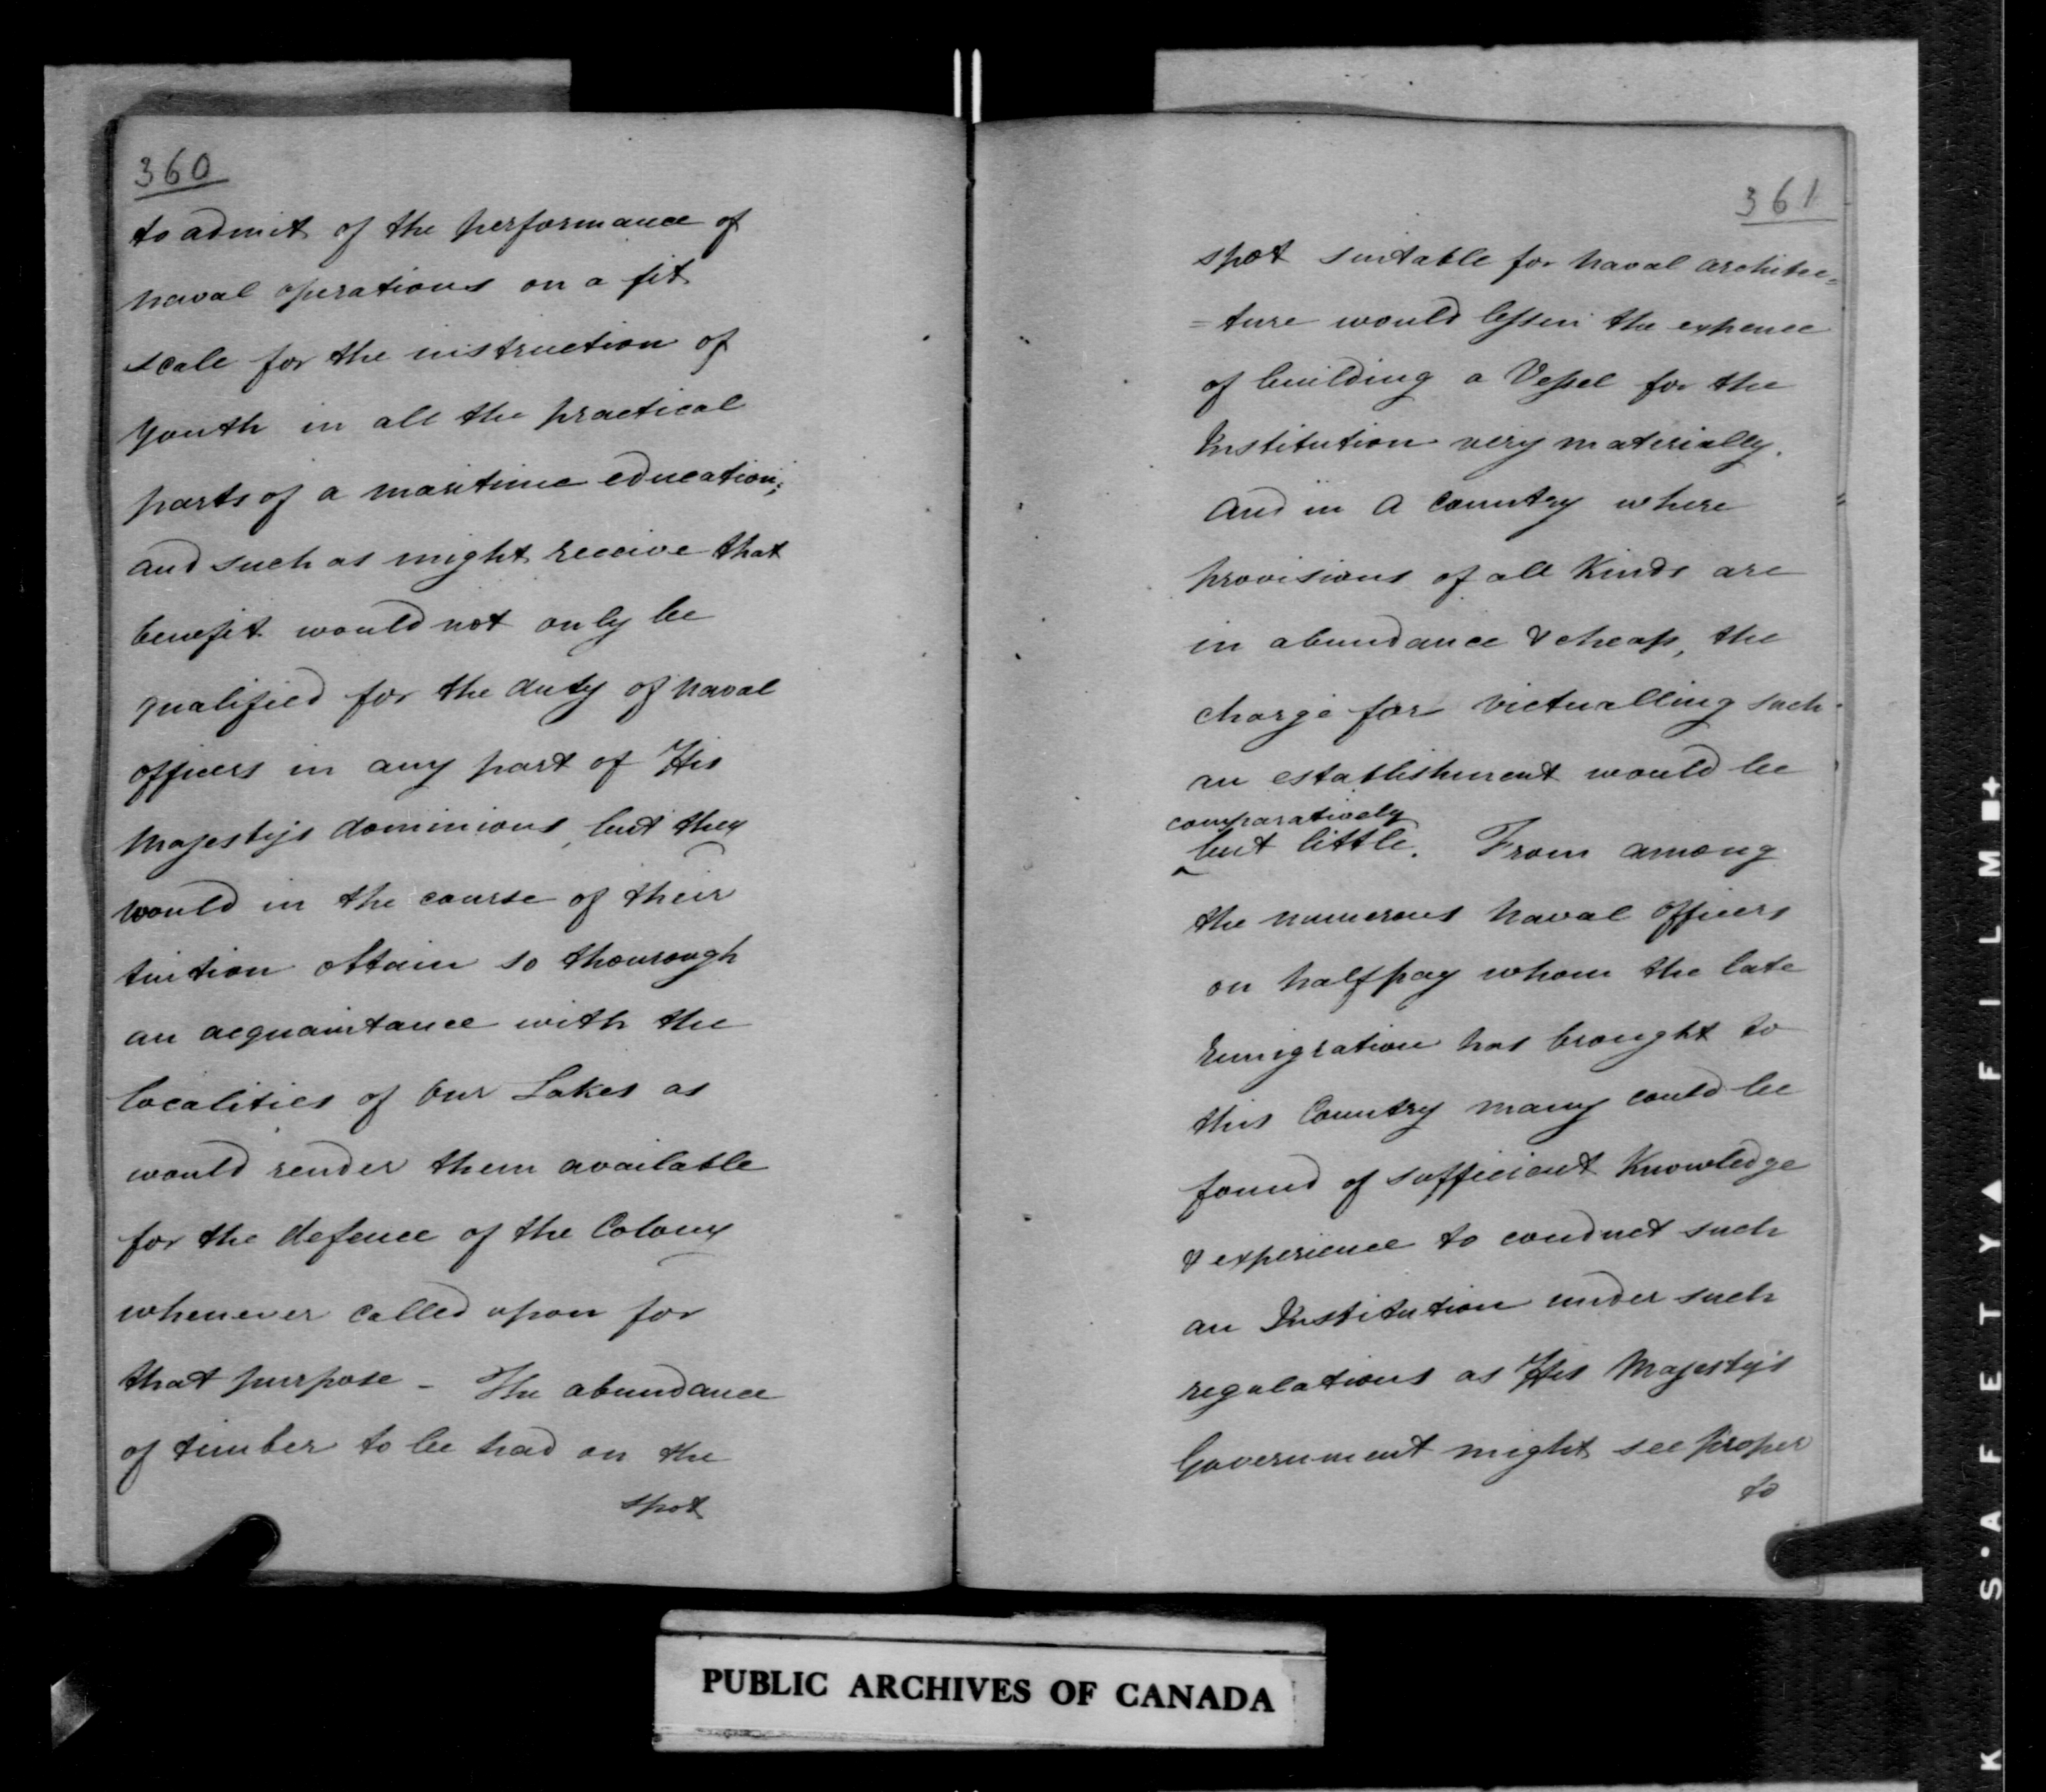 360
to admit of the performance of
naval operations on a fit
scale for the instruction of
youth in all the practical
parts of a maritime education;
and such as might receive that
benefit would not only be
qualified for the duty of naval
officers in any part of His
Majesty's dominions, but they
would in the course of their
tuition obtain so thourough
an acquaintance with the
localities of our Lakes as
would render them available
for the defence of the Colony
whenever called upon for
that purpose - The abundance
of timber to be had on the
spot
361
spot suitable for naval architec=
=ture would lessen the expence
of building a Vessel for the
Institution very materially.
And in a country where
provisions of all Kinds are
in abundance & cheap, the
charge for victualling such
an establishment would be
comparatively
^ but little. From among
the numerous naval officers
on halfpay whom the late
Emigration has brought to
this Country many could be
found of sufficient Knowledge
& experience to conduct such
an Institution under such
regulations as His Majesty's
Government might see proper
to
PUBLIC ARCHIVES OF CANADA
K S·A F E T Y ▲ F I L M ■+